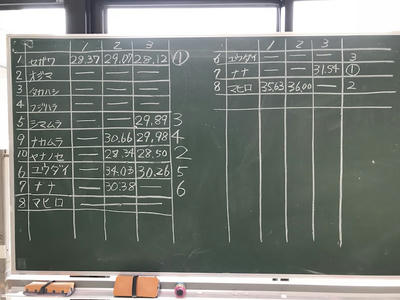 1 2 3
1 セガワ 28.37 29.07 28.12 ①
2 オジマ — — —
3 タカハシ — — —
4 フジハラ — — —
5 シマムラ — — 29.89 3
9 ナカムラ — 30.66 29.98 4
10 ヤナノセ — 28.34 28.50 2
6 ユウダイ — 34.03 30.26 5
7 ナナ — 30.38 — 6
8 マヒロ —
1 2 3
6 ユウダイ — — — 3
7 ナナ — — 31.54 ①
8 マヒロ 35.63 36.00 — 2